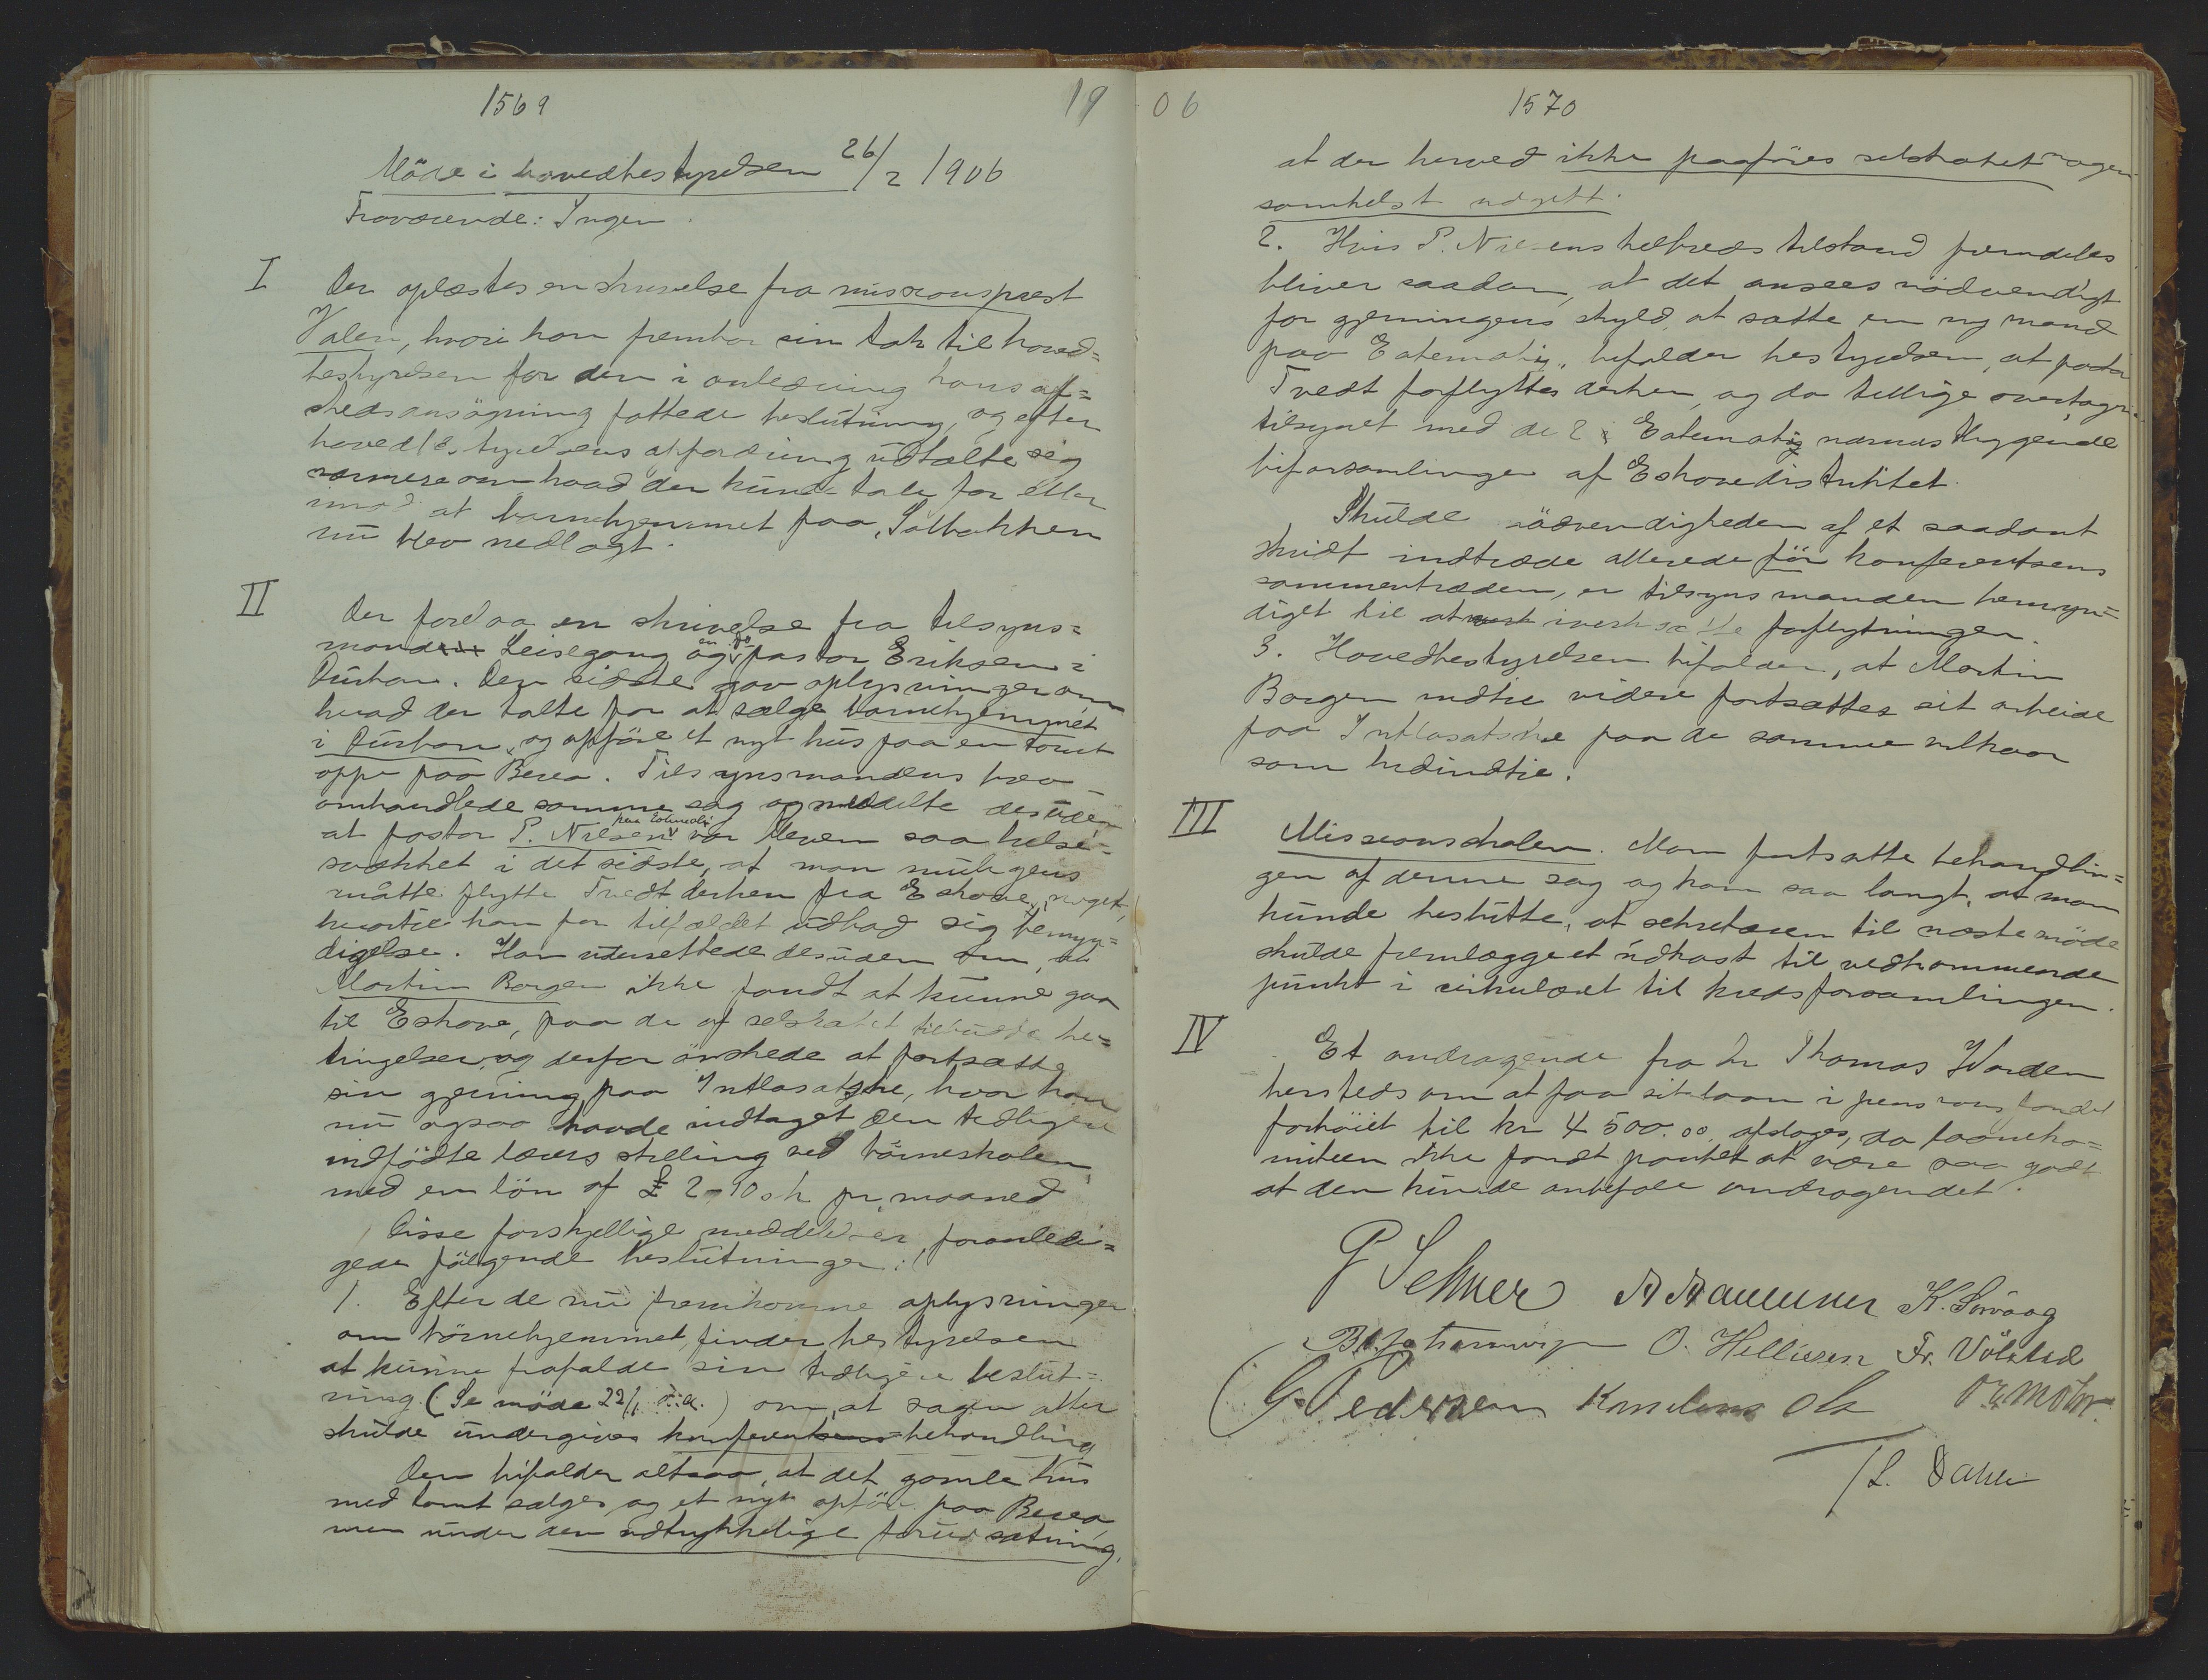 1569
19
Möde i hovedbestyrelsen 26/2 1906
Fraværende: Ingen.
I Der oplæstes en skrivelse fra missionsprest
Valen, hvori han frembar sin tak til hoved=
bestyrelsen for den i anledning hans af=
skedsansögning fattede beslutning, og efter
hovedbestyrelsens opfordring udtalte sig
nærmere om hvad der kunde tale for eller
mod at barnehjemmet paa Solbakken
nu blev nedlagt.
II Der forelaa en skrivelse fra tilsyns=
mand Leisegang og en fra pastor Eriksen i
Durban. Den sidste gav oplysninger om
hvad der talte for at sælge barnehjemmet
i Durban, og opföre et nyt hus paa en tomt
oppe paa Berea. Tilsynsmandens brev
omhandlede samme sag og meddelte desuden
at pastor P. Nilsen var bleven saa helse=
svækket i det sidste, at man muligens
måtte flytte Tvedt derhen fra Eshove, noget,
hvortil han for tilfældet udbad sig bemyn=
digelse. Han underrettede desuden om, at
Martin Borgen ikke fandt at kunne gaa
til Eshove, paa de af selskabet tilbudte be=
tingelser, og derfor önskede at fortsætte
sin gjerning paa Inhlasatshe, hvor han
nu ogsaa havde indtaget den tidligere
indfödte lærers stilling ved börneskolen
med en lön af £ 2-10 sh pr. maaned
Disse forskjellige meddelelser, foranledi=
gede fölgende beslutninger:
1. Efter de nu fremkomne oplysninger
om börnehjemmet, finder bestyrelsen
at kunne frafalde sin tidligere beslut=
ning (Se möde 22/1 d.a.) om, at sagen atter
skulde undergives konferentsens behandling
Den bifalder altsaa, at det gamle hus
med tomt sælges og et nyt opföres paa Berea,
men under den udtrykkelige forudsætning,
06
1570
at der herved ikke paaföres selskabet nogen
somhelst udgift.
2. Hvis P. Nilsens helbreds tilstand fremdeles
bliver saadan, at det ansees nödvendigt
for gjerningens skyld, at sætte en ny mand
paa Ekutemba, bifalder bestyrelsen, at pastor
Tvedt forflyttes derhen, og da tillige overtager
tilsynet med de 2 nærmestliggende
biforsamlinger af Eshovedistriktet.
Skulde nödvendigheden af et saadant
skridt indtræde allerede för konferentsens
sammentræden, er tilsynsmanden bemyn=
diget til at iverksætte forflytningen.
3. Hovedbestyrelsen bifalder, at Martin
Borgen indtil videre fortsætter sit arbeide
paa Inhlasatshe paa de samme vilkaar
som hidindtil.
III Missionsskolen. Man fortsatte behandlin=
gen af denne sag og kom saa langt, at man
kunde beslutte, at sekretæren til næste möde
skulde fremlægge et udkast til vedkommende
punkt i cirkulæret til kredsforsamlingen.
IV Et andragende fra hr Thomas Warden
hersteds om at faa sit laan i pensionsfondet
forhöiet til kr 4500.00 afsloges, da laaneko=
miteen ikke fandt pantet at være saa godt
at den kunde anbefale andragendet.
K. Sørvaag
O. Hellesen Fr. Völstad
G. Pedersen
L. Dahle